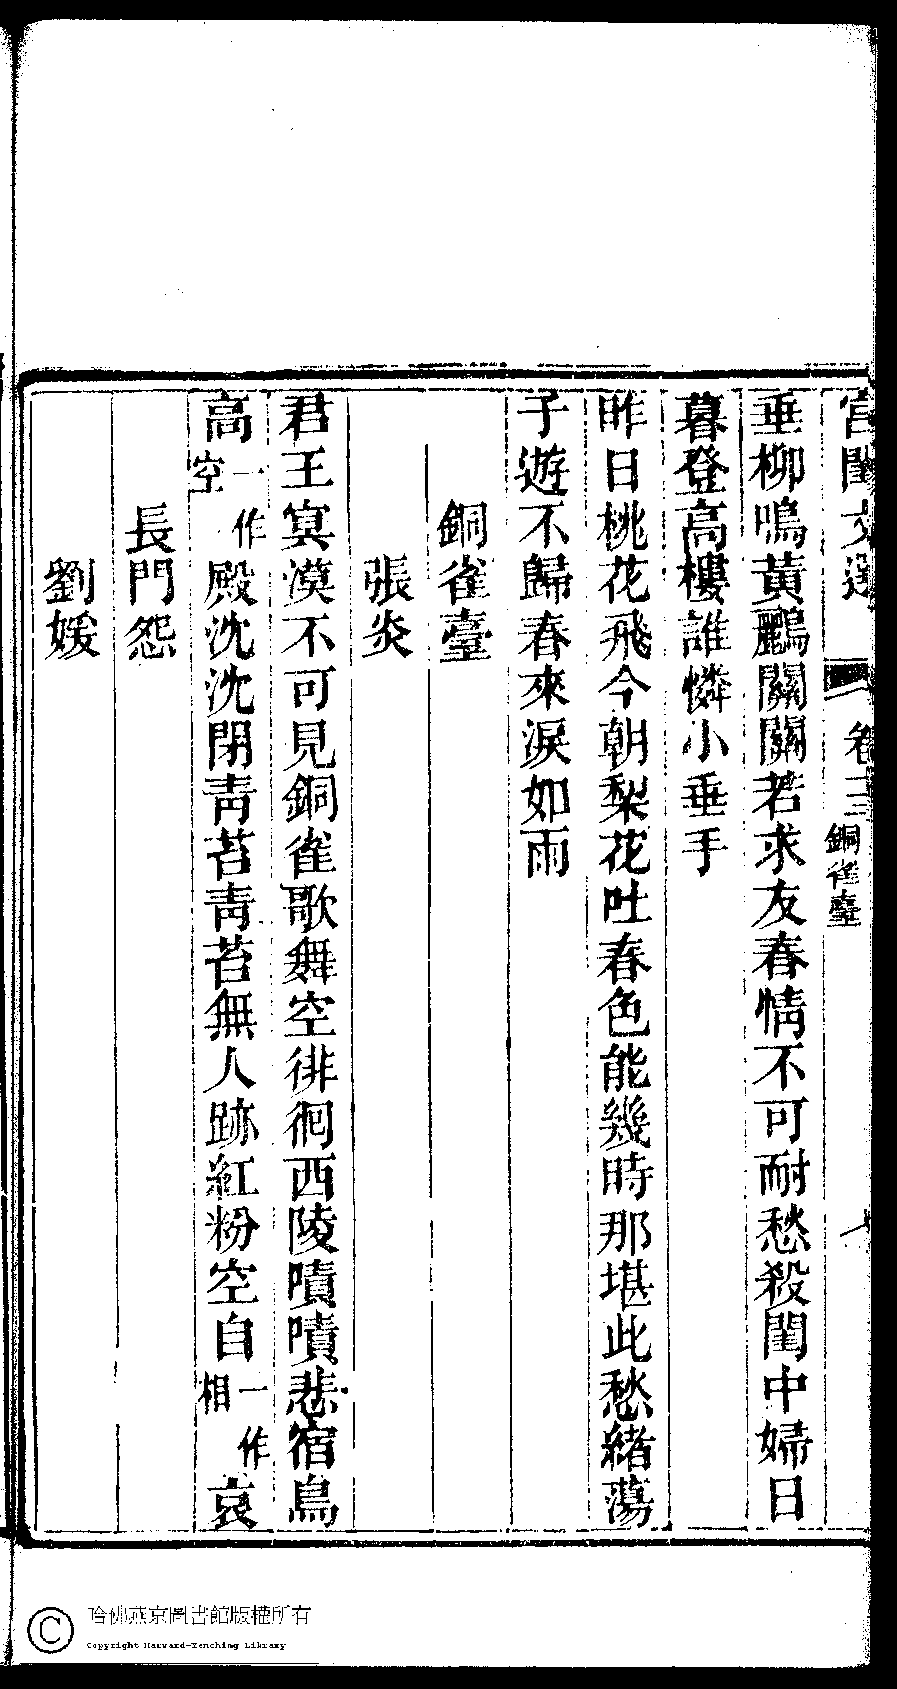 宮閨文選 卷十三 銅雀臺
垂柳鳴黃鸝關關若求友春情不可耐愁殺閨中婦日
暮登高樓誰憐小垂手
昨日桃花飛今朝梨花吐春色能幾時那堪此愁緒蕩
子遊不歸春來淚如雨
銅雀臺
張炎
君王寞漠不可見銅雀歌舞空徘徊西陵嘖嘖悲宿鳥
高一作空殿沈沈閉青苔青苔無人跡紅粉空自一作相哀
長門怨
劉媛
哈佛燕京圖書館版權所有
Copyright Harvard-Yenching Library